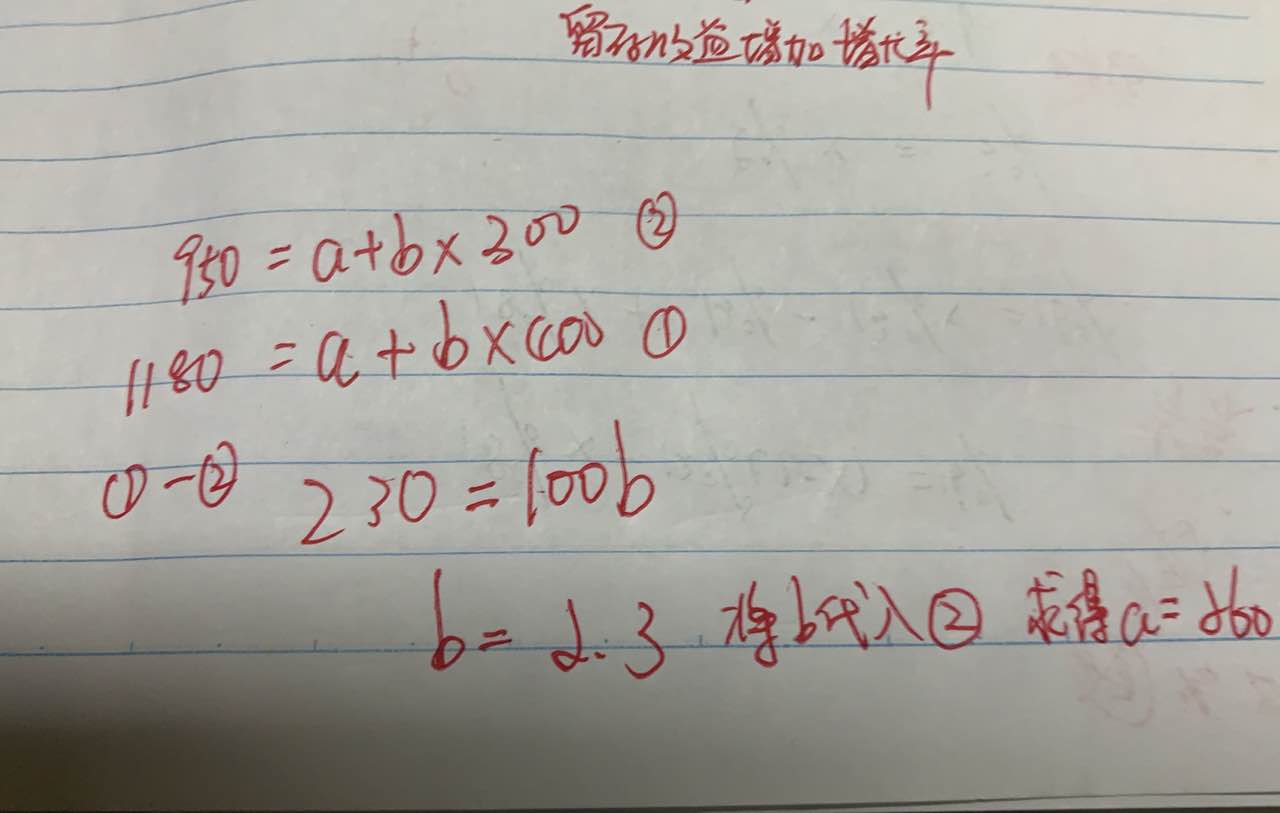 留存收益增加 增长率
950 = a + b × 300 ②
1180 = a + b × 400 ①
① - ② 230 = 100b
b = 2.3 将b代入② 求得a = 260